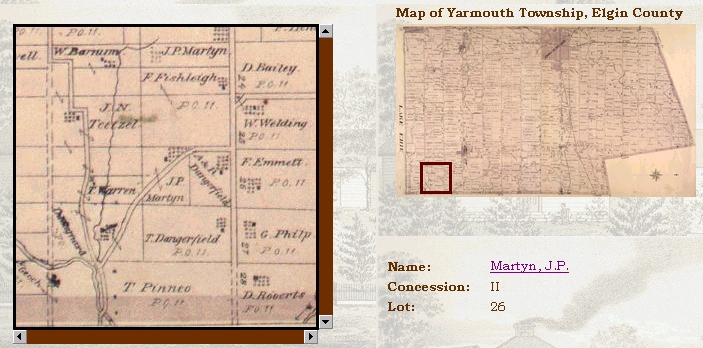 Map of Yarmouth Township, Elgin County
W. Barnum
J.P. Martyn
F. Fishleigh
P.O. 11.
D. Bailey.
24
P.O. 11.
J. N.
Teetzel
W. Welding
25
P.O. 11.
F. Emmett.
26
P.O. 11.
Dangerfield
J.P.
Martyn
Warren
T. Dangerfield
P.O. 11.
G. Philp
27
P.O. 11.
T. Pinneo
P.O. 11.
28
D. Roberts
P.O. 11.
LAKE ERIE
Name: Martyn, J.P.
Concession: II
Lot: 26